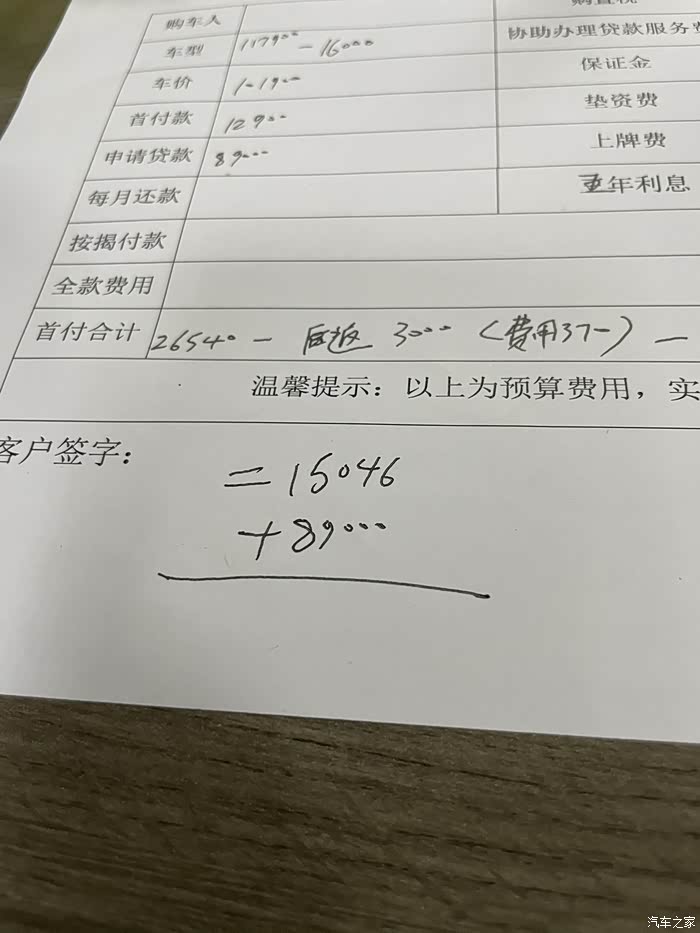 购车人
购置税
车型 117900 - 16000
协助办理贷款服务费
车价 101900
保证金
首付款 12900
垫资费
申请贷款 89000
上牌费
每月还款
五年利息
按揭付款
全款费用
首付合计 26540 - 后返 3000 (费用37-) -
温馨提示: 以上为预算费用，实
客户签字:
= 15046
+ 89000
汽车之家